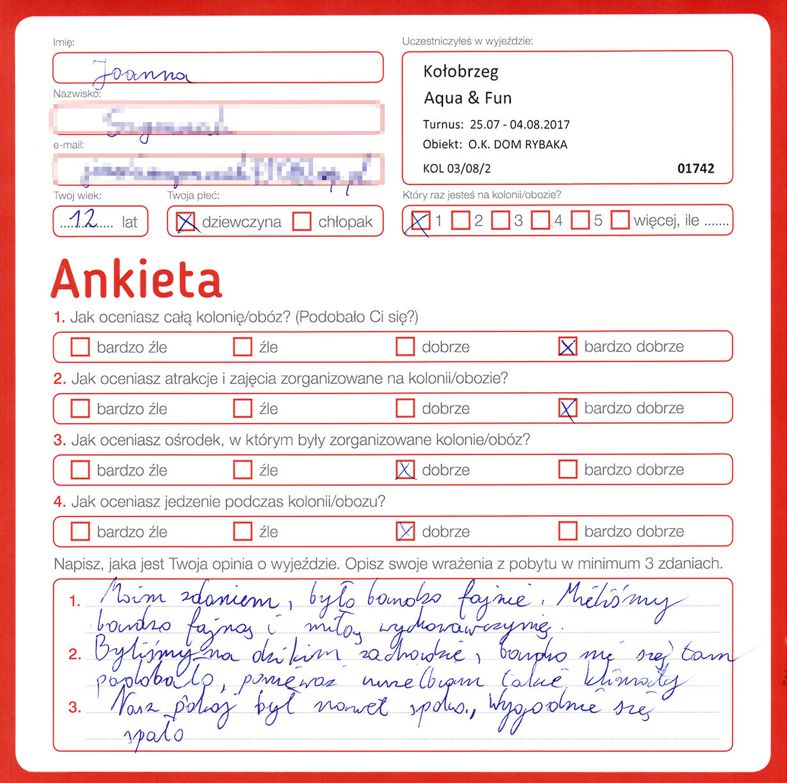 Imię:
Joanna
Uczestniczyłeś w wyjeździe:
Kołobrzeg
Aqua & Fun
Turnus: 25.07 - 04.08.2017
Obiekt: O.K. DOM RYBAKA
KOL 03/08/2 01742
Nazwisko:
e-mail:
Twój wiek:
12 lat
Twoja płeć:
dziewczyna chłopak
Który raz jesteś na kolonii/obozie?
1 2 3 4 5 więcej, ile .......
Ankieta
1. Jak oceniasz całą kolonię/obóz? (Podobało Ci się?)
bardzo źle źle dobrze bardzo dobrze
2. Jak oceniasz atrakcje i zajęcia zorganizowane na kolonii/obozie?
bardzo źle źle dobrze bardzo dobrze
3. Jak oceniasz ośrodek, w którym były zorganizowane kolonie/obóz?
bardzo źle źle dobrze bardzo dobrze
4. Jak oceniasz jedzenie podczas kolonii/obozu?
bardzo źle źle dobrze bardzo dobrze
Napisz, jaka jest Twoja opinia o wyjeździe. Opisz swoje wrażenia z pobytu w minimum 3 zdaniach.
1. Moim zdaniem, było bardzo fajnie. Mieliśmy
bardzo fajną i miłą wychowawczynię.
2. Byliśmy na dzikim zachodzie, bardzo mi się tam
podobało, ponieważ uwielbiam takie klimaty
3. Nasz pokój był nawet spoko, wygodnie się
spało